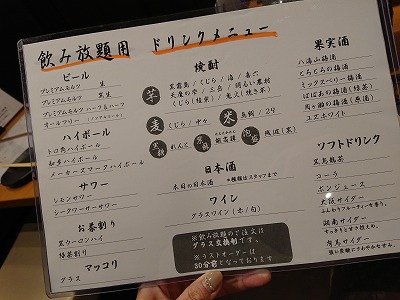 飲み放題用 ドリンクメニュー
ビール
プレミアムモルツ 生
プレミアムモルツ 黒生
プレミアムモルツ ハーフ&ハーフ
オールフリー (ノンアルコール)
ハイボール
トロ角ハイボール
メーカーズマークハイボール
サワー
レモンサワー
シークワーサーサワー
お茶割り
黒ウーロンハイ
緑茶割り
マッコリ
グラス
焼酎
芋
黒霧島 / くじら / 海 / 喜六
麦
くじら / 中々
米
鳥飼 / 24
黒糖
れんと
泡盛
残波(黒)
日本酒
本日の日本酒 *種類はスタッフまで
ワイン
グラスワイン (赤/白)
※飲み放題のご注文は
グラス交換制です。
※ラストオーダーは
30分前となっております
果実酒
八海山梅酒
とろとろの梅酒
ミックスベリー梅酒
ばばあの梅酒(緑茶)
月ヶ瀬の梅酒(原酒)
ユズホワイト
ソフトドリンク
黒烏龍茶
コーラ
ポンジュース
大阪サイダー
湘南サイダー
有馬サイダー